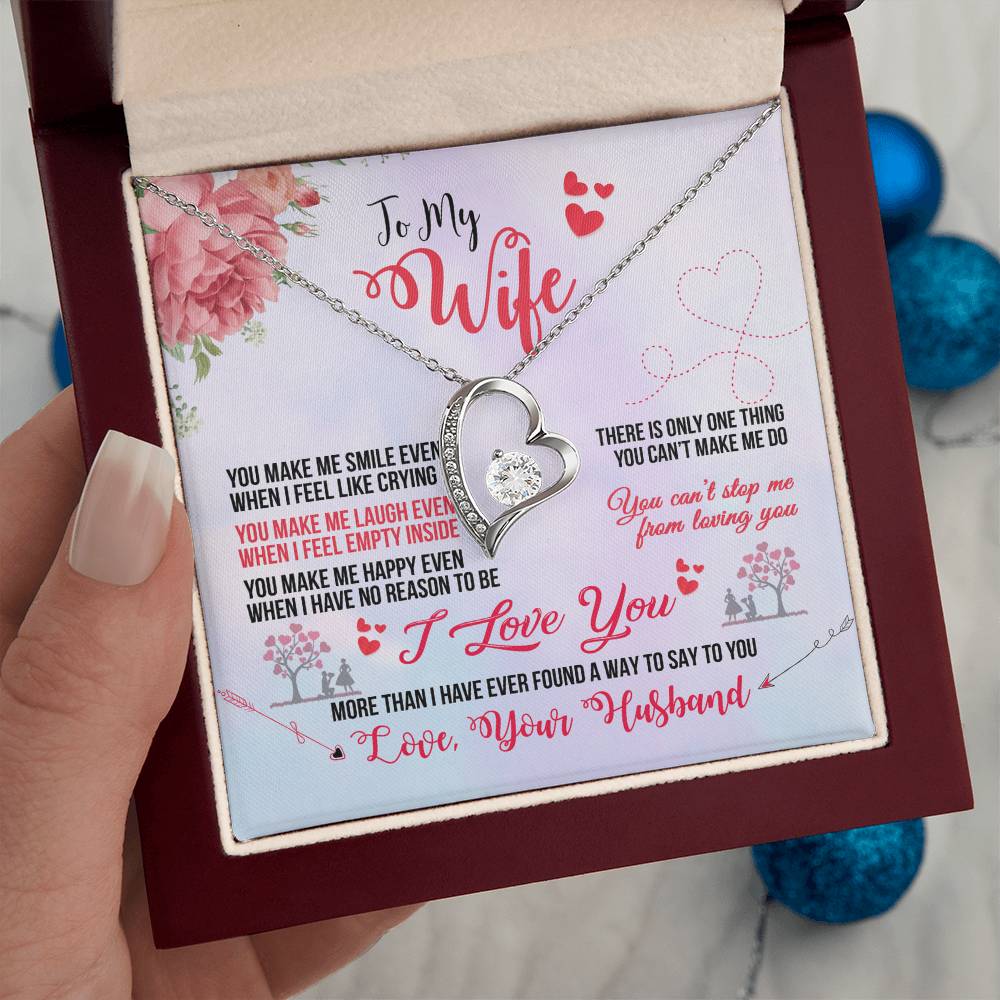 To My
Wife
YOU MAKE ME SMILE EVEN
WHEN I FEEL LIKE CRYING
YOU MAKE ME LAUGH EVEN
WHEN I FEEL EMPTY INSIDE
YOU MAKE ME HAPPY EVEN
WHEN I HAVE NO REASON TO BE
THERE IS ONLY ONE THING
YOU CAN'T MAKE ME DO
You can't stop me
from loving you
I Love You
MORE THAN I HAVE EVER FOUND A WAY TO SAY TO YOU
Love, Your Husband